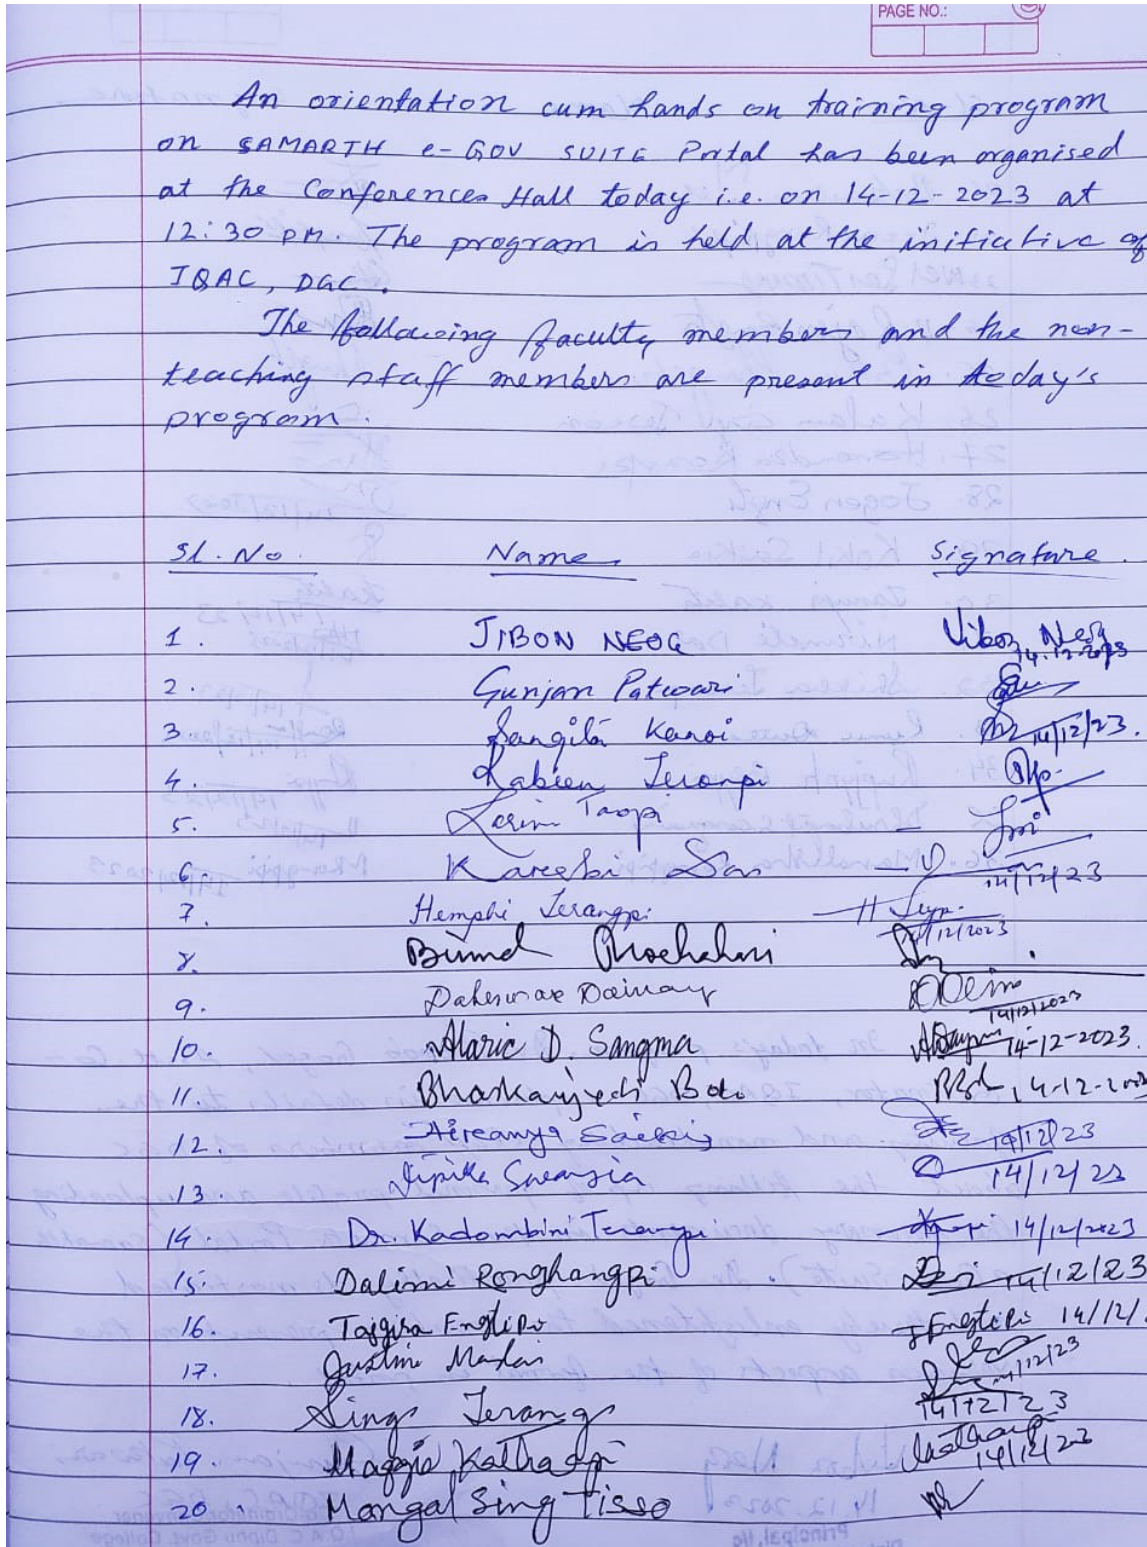 PAGE NO.:
An orientation cum hands on training program
on SAMARTH e-GOV SUITE Portal has been organised
at the Conferences Hall today i.e. on 14-12-2023 at
12:30 PM. The program is held at the initiative of
IQAC, DGC.
The following faculty members and the non-
teaching staff members are present in today's
program.
Sl. No. Name Signature
1. JIBON NEOG Jibon Neog 14.12.2023
2. Gunjan Patwari
3. Sangita Kanoi 14/12/23.
4. Kabien Teronpi
5. Taropi
6. Kareebi Das 14/12/23
7. Hemphi Terangpi 14/12/2023
8.
9. Daheswar Daimary 14/12/2023
10. Alaric D. Sangma 14-12-2023.
11. Bhaskarjyoti Bodo 14-12-2023
12. Saikia 14/12/23
13. Dipika 14/12/23
14. Dr. Kadombini Terangpi 14/12/2023
15. Dalimi Ronghangpi 14/12/23
16. Engtipi 14/12/
17. Justine 14/12/23
18. Sing Terang 14/12/23
19. Maggie Katharpi 14/12/23
20. Mangal Sing Tisso